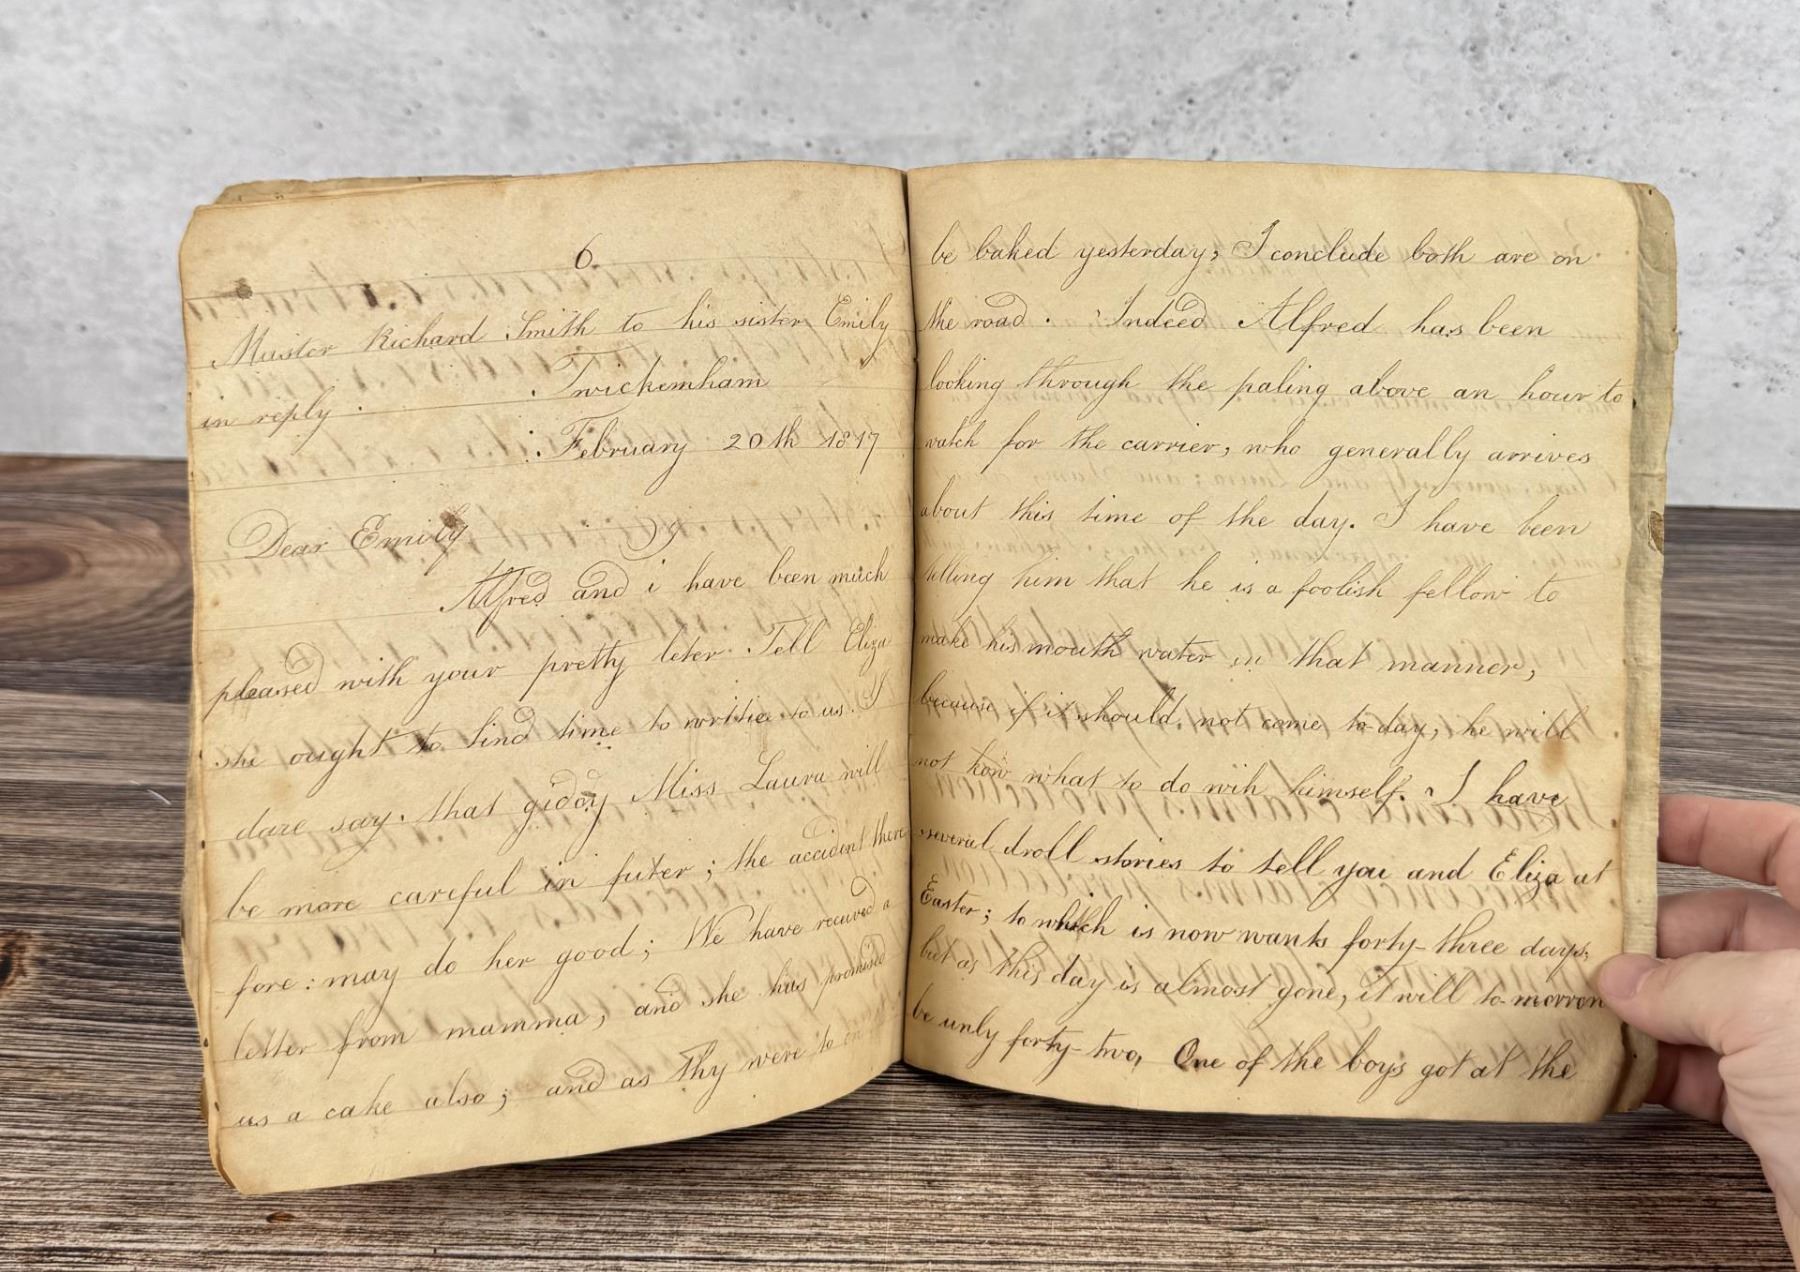 6
Master Richard Smith to his sister Emily
in reply . . Twickemham
: February 20th 1817
Dear Emily
Alfred and i have been much
pleased with your pretty leter. Tell Eliza
she ought to find time to writie to us. I
dare say. that giddy Miss Laura will
be more careful in futer; the accident there
fore: may do her good; We have received a
letter from mamma, and she has promised
us a cake also; and as thy were to
be baked yesterday; I conclude both are on
the road. Indeed Alfred has been
looking through the paling above an hour to
watch for the carrier, who generally arrives
about this time of the day. I have been
telling him that he is a foolish fellow to
make his mouth water in that manner,
because if it should not come to-day, he will
not know what to do wih himself. I have
several droll stories to tell you and Eliza at
Easter; to which is now wants forty-three days,
but as this day is almost gone, it will to-morrow
be unly forty-two, One of the boys got at the